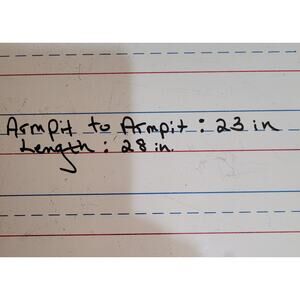 Armpit to Armpit: 23 in
Length: 28 in.